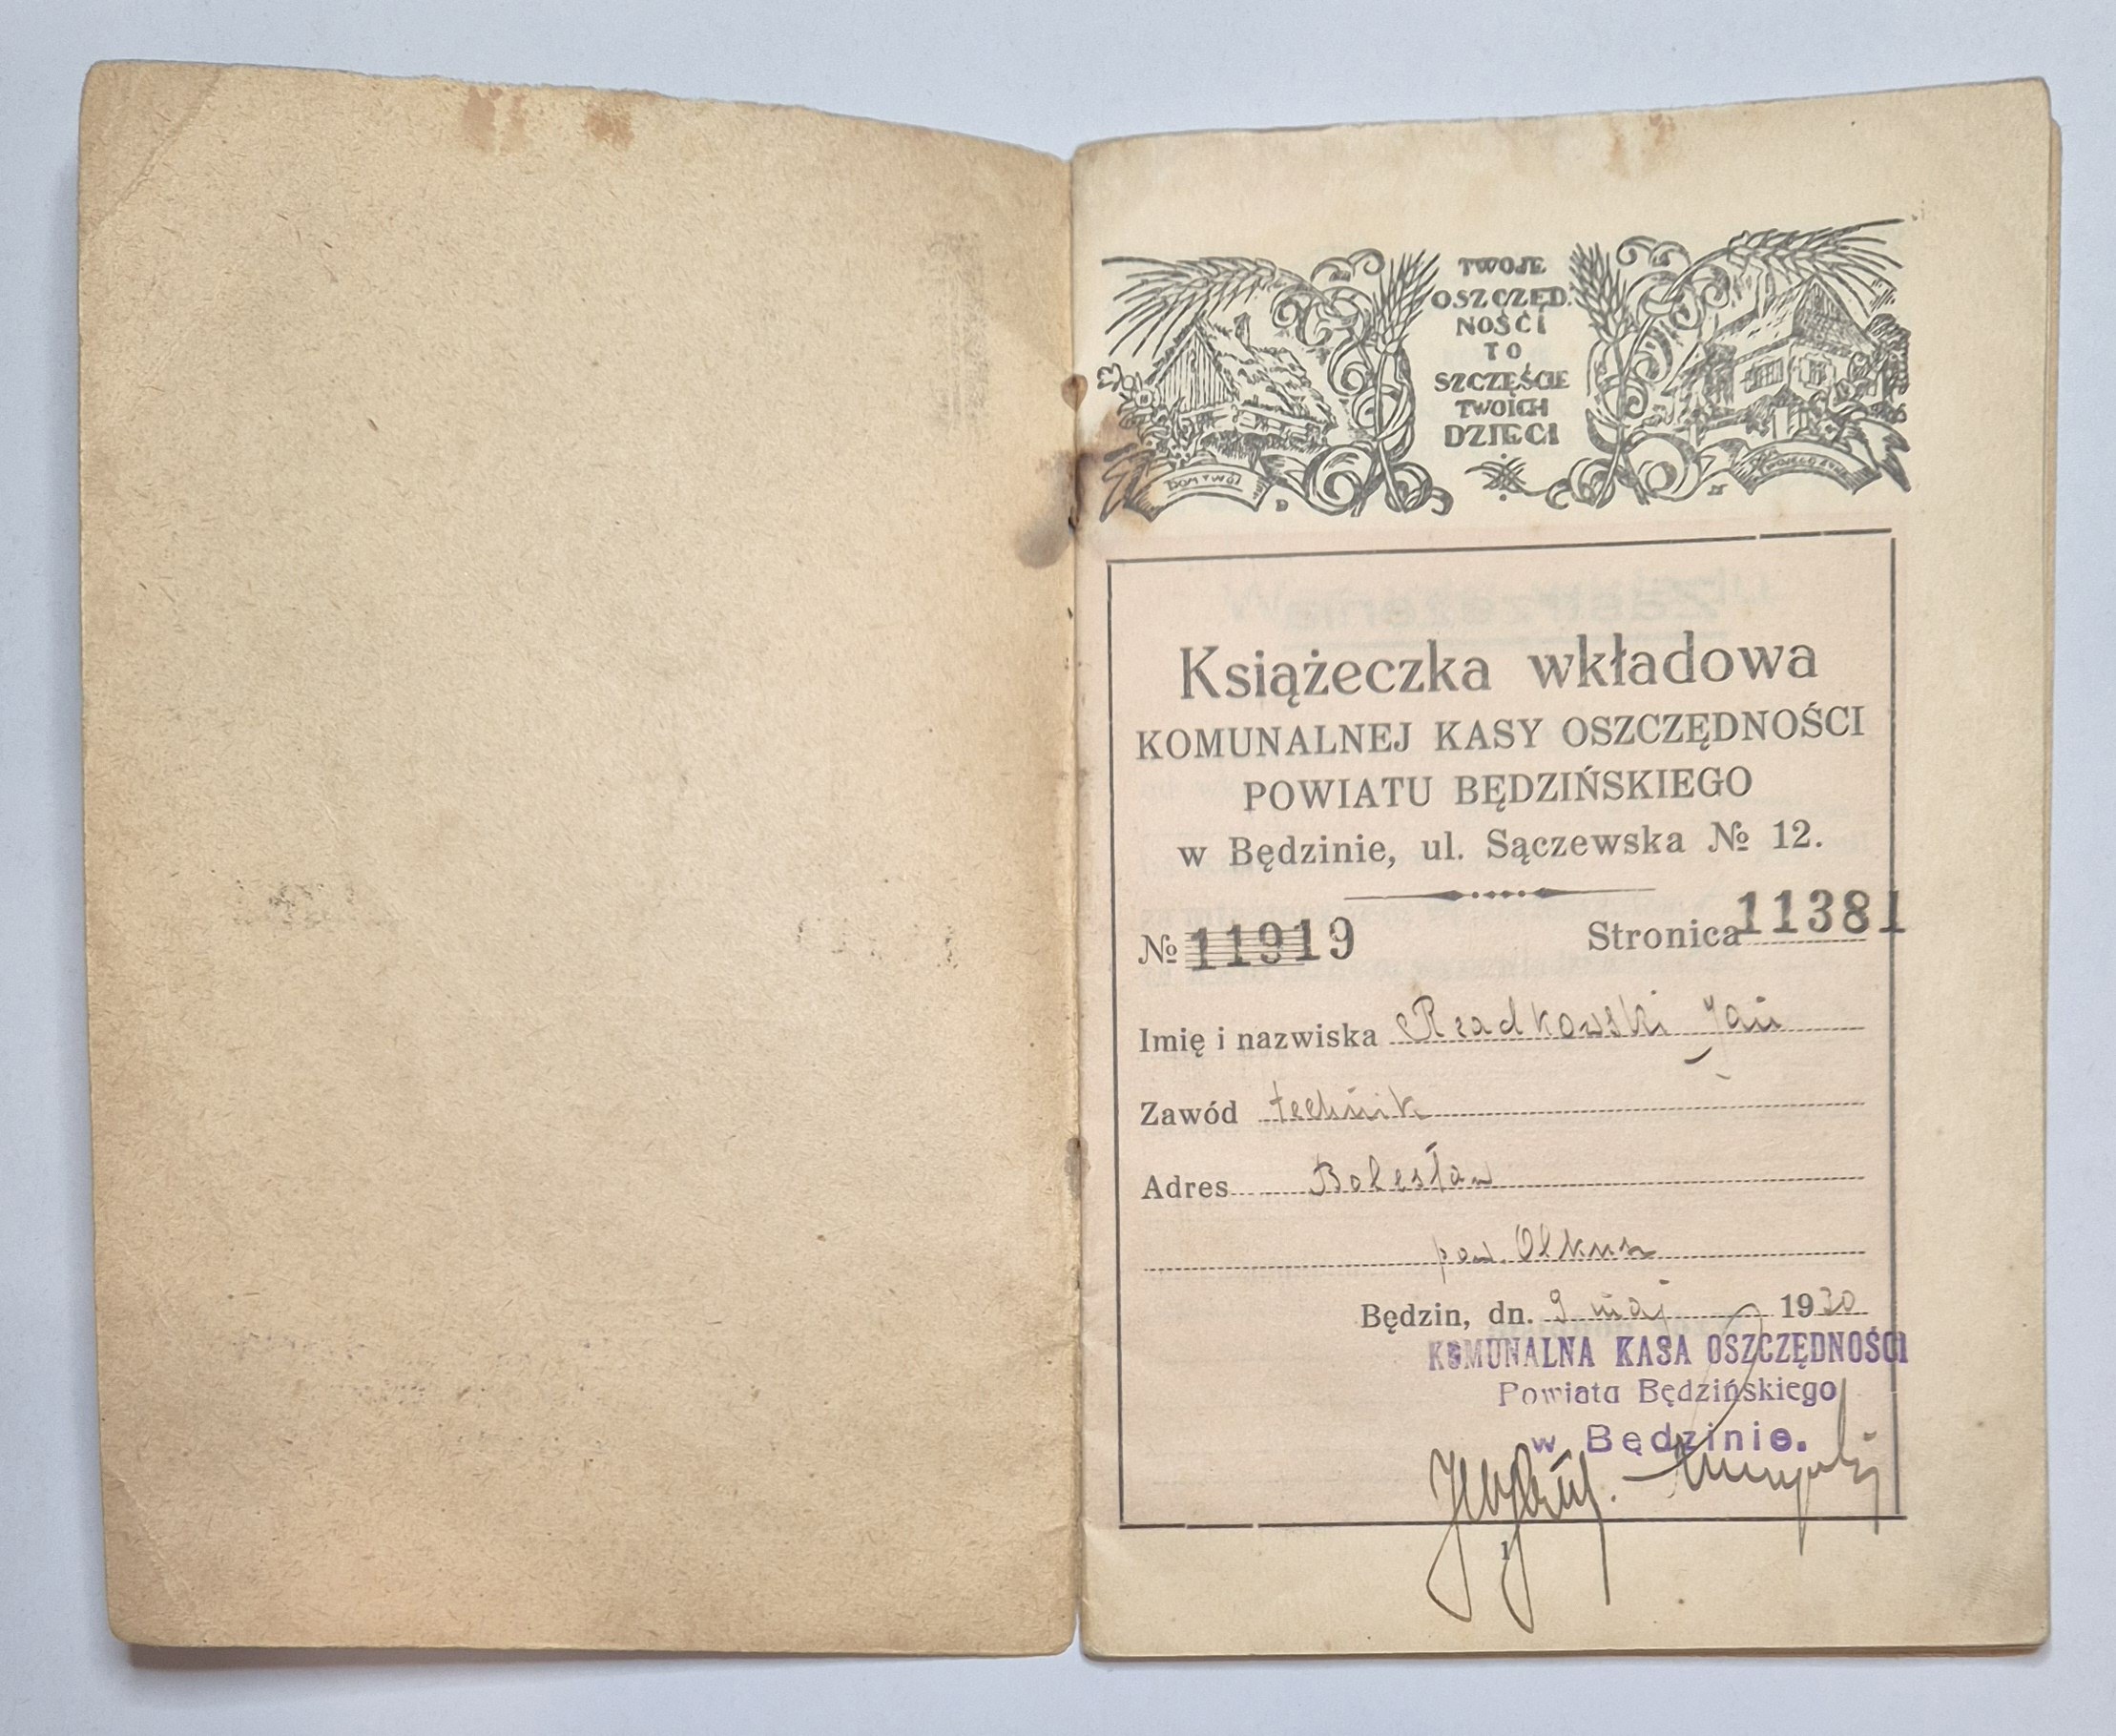 TWOJE
OSZCZĘD.
NOŚCI
TO
SZCZĘŚCIE
TWOICH
DZIECI
DOM TWÓJ
Książeczka wkładowa
KOMUNALNEJ KASY OSZCZĘDNOŚCI
POWIATU BĘDZIŃSKIEGO
w Będzinie, ul. Sączewska № 12.
№ 11919 Stronica 11381
Imię i nazwiska Rzadkowski Jan
Zawód technik
Adres Bolesław
pow. Olkusz
Będzin, dn. 9 maj 1930
KOMUNALNA KASA OSZCZĘDNOŚCI
Powiatu Będzińskiego
w Będzinie.
1